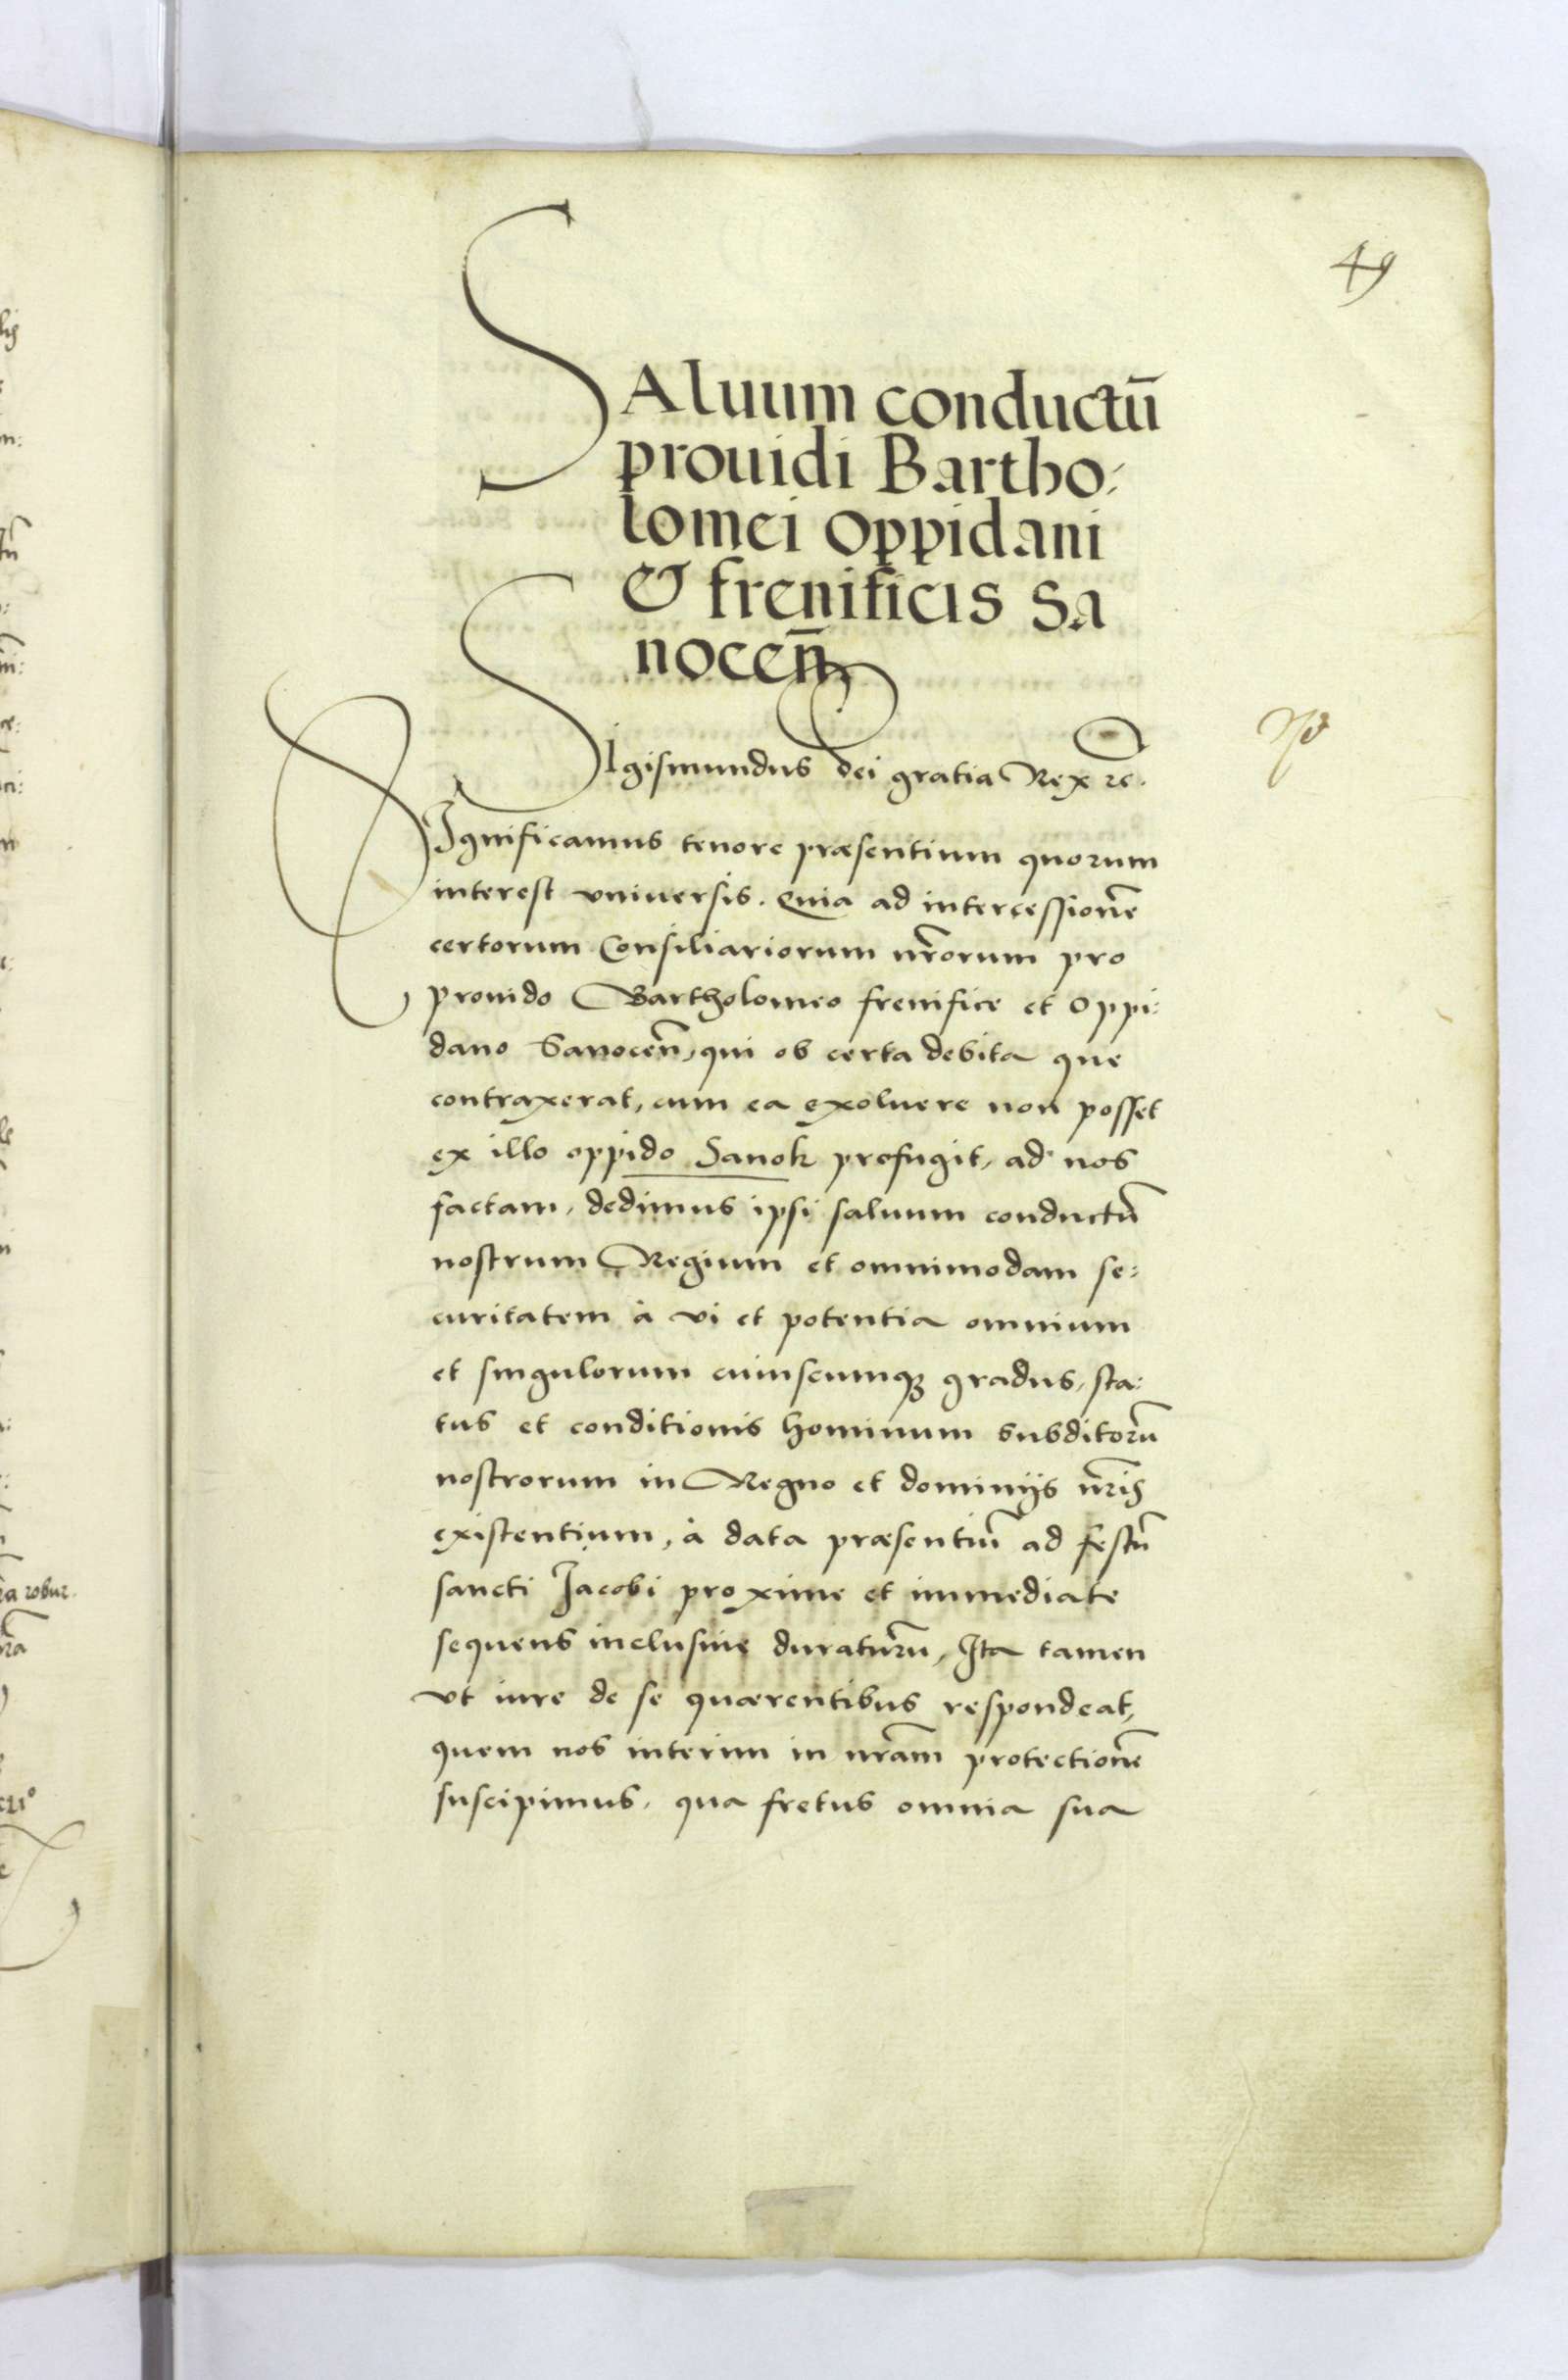 49
SAluum conductū
prouidi Bartho:
lomei oppidani
& frenificis Sa
nocen̄
SIgismundus dei gratia Rex ꝛc.
SIgnificamus tenore præsentium quorum
interest vniuersis. Quia ad intercessionē
certorum Consiliariorum nr̄orum pro
prouido Bartholomeo frenifice et oppi:
dano Sanocen̄, qui ob certa debita que
contraxerat, cum ea exoluere non posset
ex illo oppido Sanok profugit, ad nos
factam, dedimus ipsi saluum conductū
nostrum Regium et omnimodam se:
curitatem à vi et potentia omnium
et singulorum cuiuscumqꝫ gradus, sta:
tus et conditionis hominum subditorū
nostrorum in Regno et dominijs nr̄is
existentium, à data præsentiū ad festū
sancti Jacobi proxime et immediate
sequens inclusiue duraturū, Ita tamen
vt iure de se quærentibus respondeat,
quem nos interim in nr̄am protectionē
suscipimus, qua fretus omnia sua